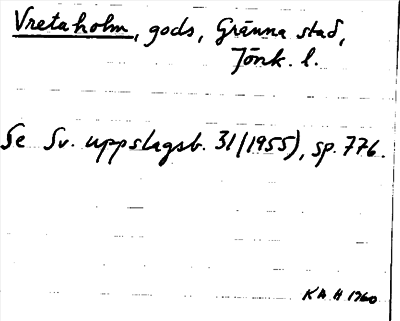 Vretaholm, gods, Gränna stad,
Jönk. l.
Se Sv. uppslagsb. 31(1955), sp. 776.
K A H 1960